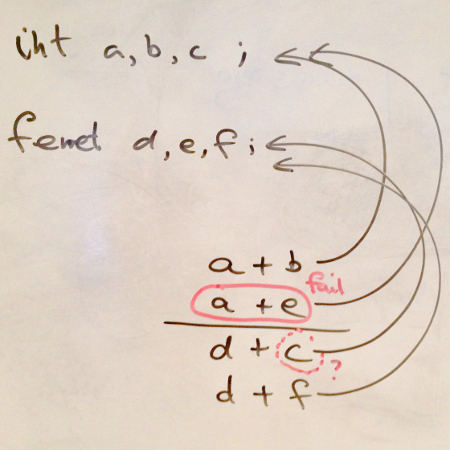 int a, b, c ;
d, e, f ;
a + b
a + e fail
d + c ?
d + f